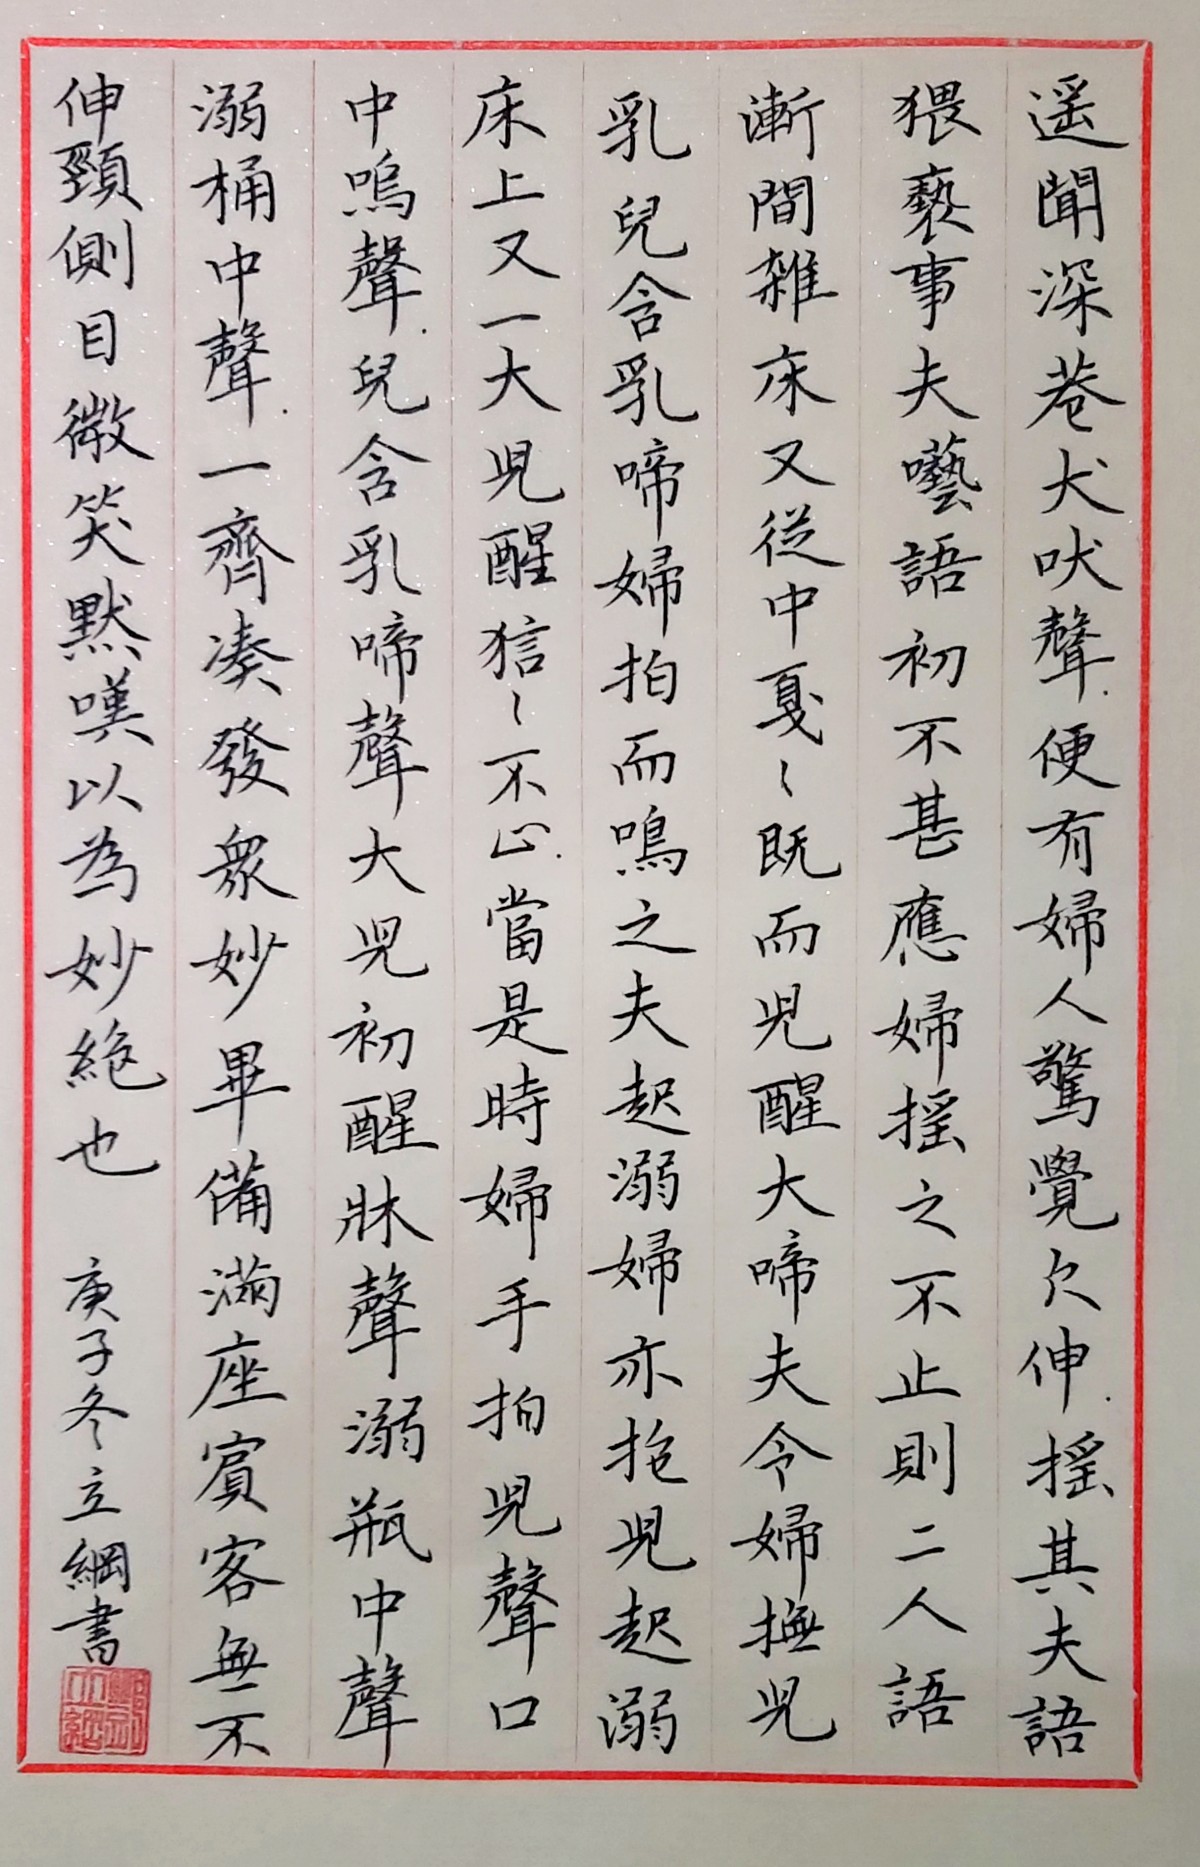 遥聞深巷犬吠聲便有婦人驚覺欠伸摇其夫語
猥褻事夫囈語初不甚應婦摇之不止則二人語
漸間雜床又從中戛〻既而兒醒大啼夫令婦撫兒
乳兒含乳啼婦拍而鳴之夫起溺婦亦抱兒起溺
床上又一大兒醒狺〻不止當是時婦手拍兒聲口
中嗚聲兒含乳啼聲大兒初醒牀聲溺瓶中聲
溺桶中聲一齊凑發衆妙畢備滿座賓客無不
伸頸側目微笑默嘆以為妙絶也
庚子冬立綱書